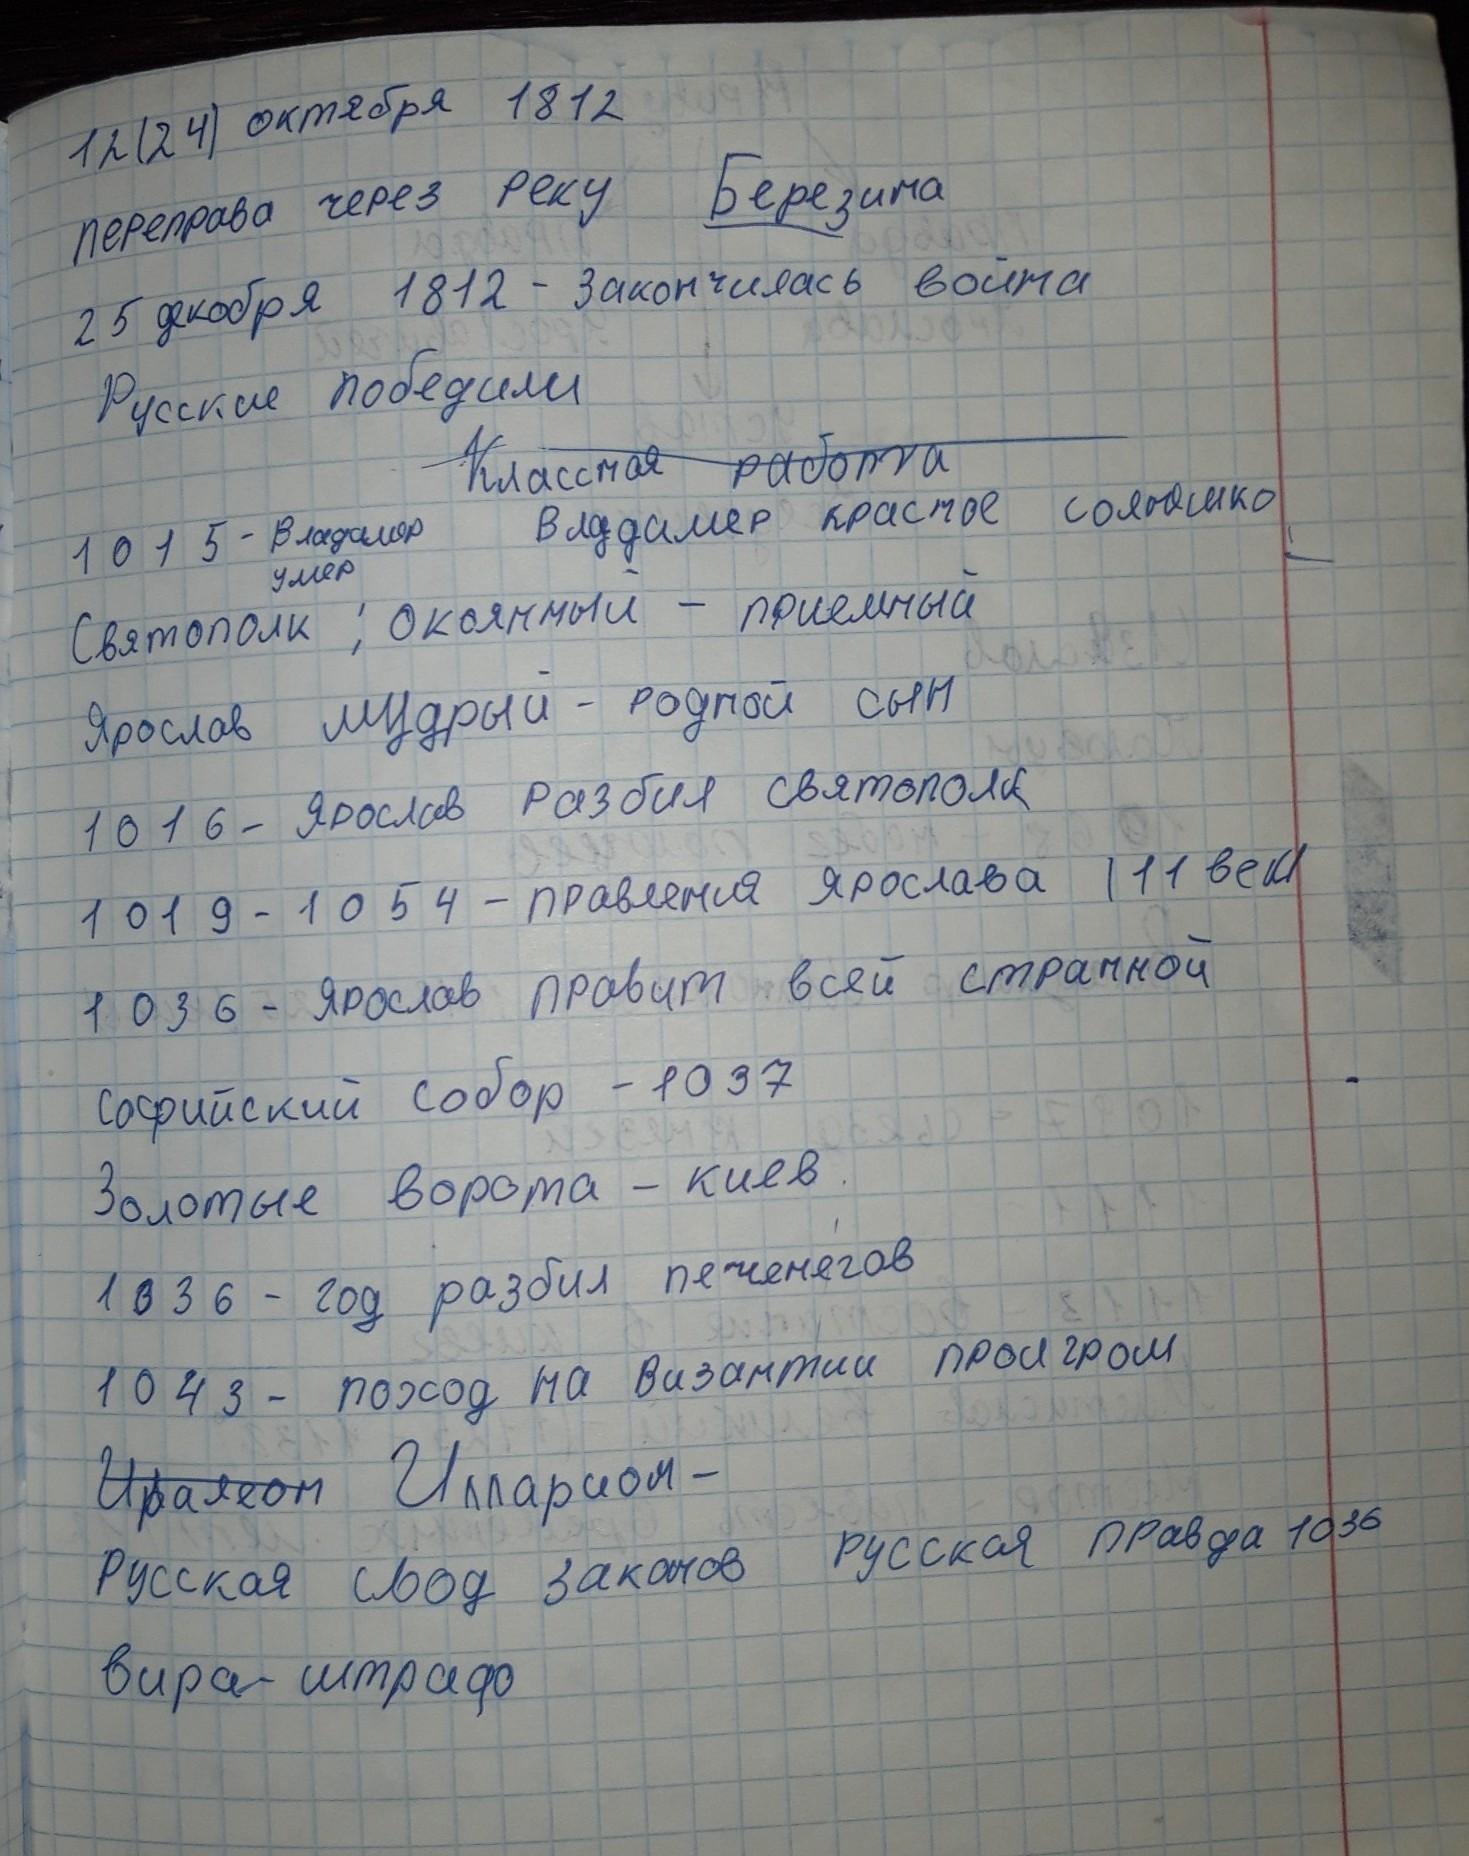 12(24) октября 1812
переправа через реку Березина
25 декобря 1812 - Закончилась война
Русские победили
Классная работа
1015 - Владимер Владимер красное солнышко
умер
Святополк ; окоянный - приемный
Ярослав мудрый - родной сын
1016 - Ярослав разбил святополк
1019 - 1054 - правления Ярослава | 11 век|
1036 - Ярослав правит всей странной
Софийский Собор - 1037
Золотые ворота - киев.
1036 - год разбил печенегов
1043 - поход на византии проигром
Илларион -
Русская свод законов русская правда 1036
вира - штраф